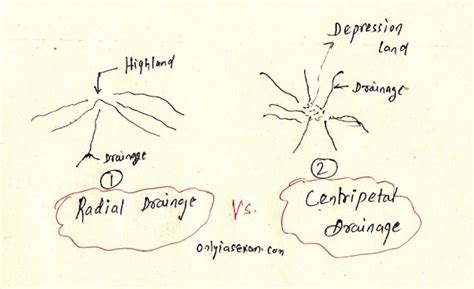 Highland
Drainage
1
Radial Drainage
Vs.
Depression
land
Drainage
2
Centripetal
Drainage
onlyiasexam.com